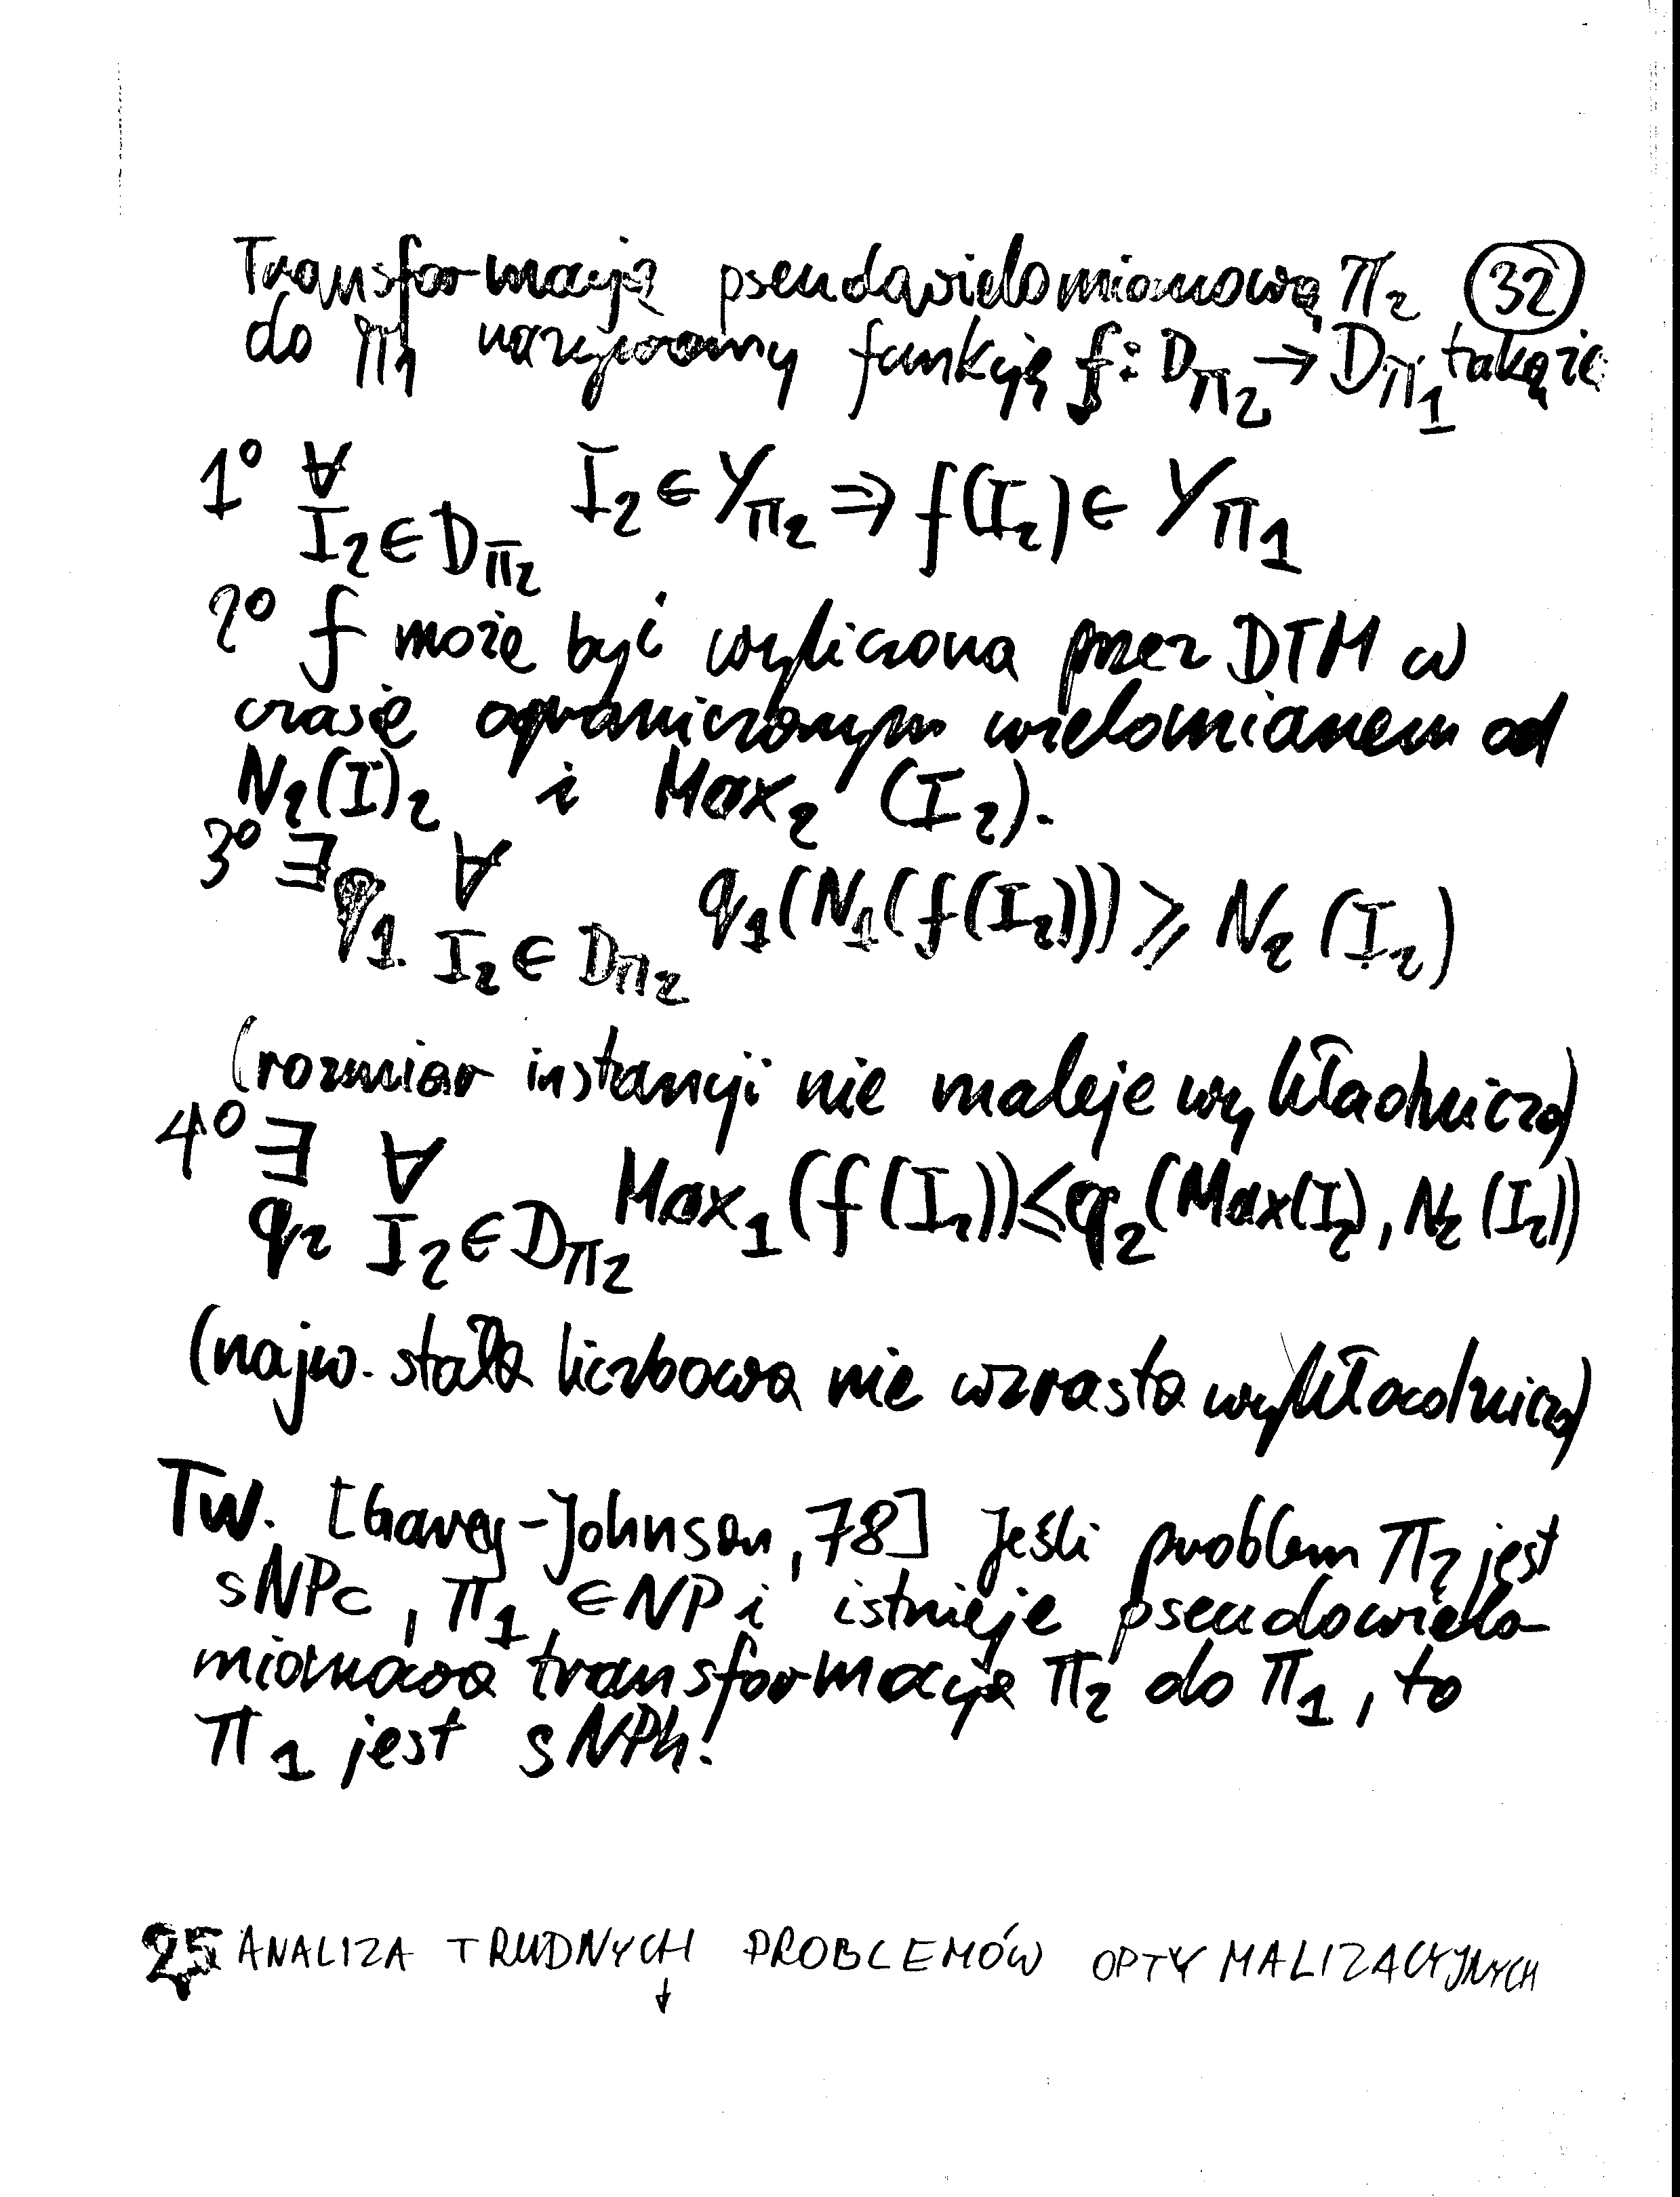 Transformacją pseudowielomianową π₂ (32)
do π₁ nazywamy funkcję f: D_π₂ → D_π₁ taką że
1° ∀ I₂ ∈ Y_π₂ ⇒ f(I₂) ∈ Y_π₁
I₂ ∈ D_π₂
2° f może być wyliczona przez DTM w
czasie ograniczonym wielomianem od
N₂(I)₂ i Max₂ (I₂).
3° ∃ ∀ q₁(N₁(f(I₂))) ⩾ N₂(I₂)
q₁ I₂ ∈ D_π₂
(rozmiar instancji nie maleje wykładniczo)
4° ∃ ∀ Max₁(f(I₂)) ≤ q₂(Max(I₂), N₂(I₂))
q₂ I₂ ∈ D_π₂
(najw. stała liczbowa nie wzrasta wykładniczo)
Tw. [Garey-Johnson, 78] Jeśli problem π₂ jest
sNPc, π₁ ∈ NP i istnieje pseudowielo-
mianowa transformacja π₂ do π₁, to
π₁ jest sNPh.
25 ANALIZA TRUDNYCH PROBLEMÓW OPTYMALIZACYJNYCH
↓